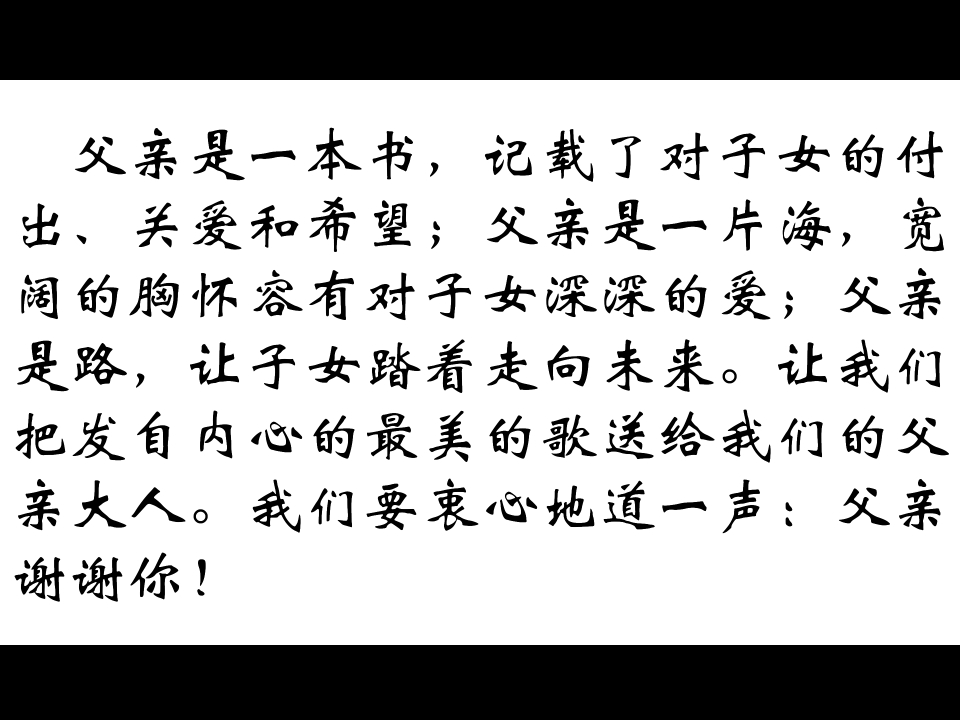 父亲是一本书，记载了对子女的付
出、关爱和希望；父亲是一片海，宽
阔的胸怀容有对子女深深的爱；父亲
是路，让子女踏着走向未来。让我们
把发自内心的最美的歌送给我们的父
亲大人。我们要衷心地道一声：父亲
谢谢你！